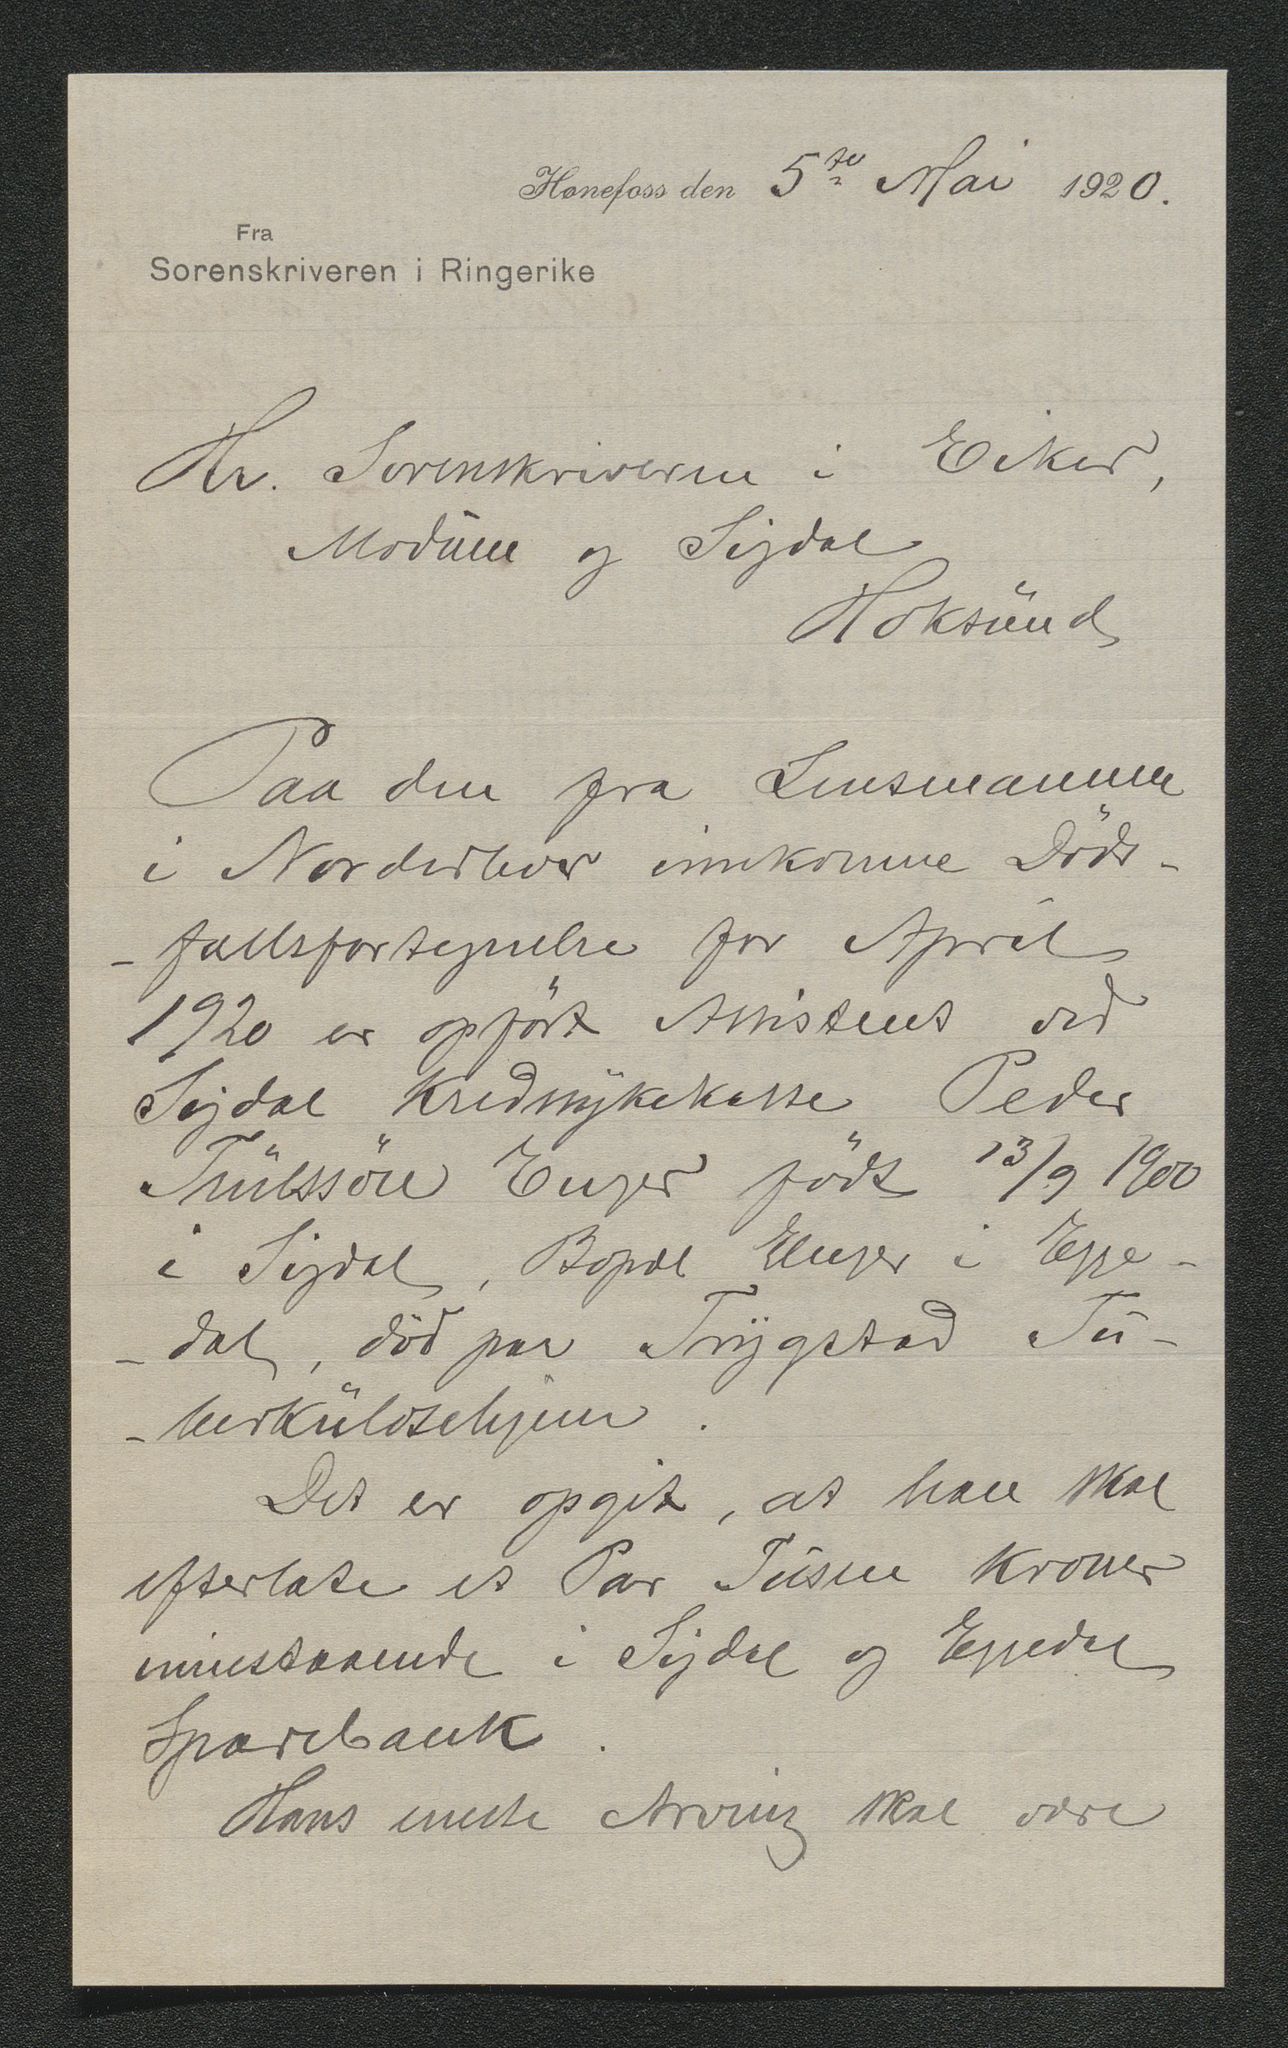 Hønefoss den 5te Mai 1920.
Fra
Sorenskriveren i Ringerike
Hr. Sorenskriveren i Eiker,
Modum og Sigdal
Hoksund
Paa den fra Lensmannen
i Norderhov innkomne Döds-
-fallsfortegnelse for April
1920 er opfört Assistent ved
Sigdal Kredssykekasse Peder
Trulssön Enger födt 13/9 1900
i Sigdal, Bopæl Enger i Egge-
-dal, död paa Trygstad Tu-
-berkulosehjem.
Det er opgit, at han skal
efterlate et Par Tusen Kroner
innestaaende i Sigdal og Eggedal
Sparebank.
Hans eneste Arving skal være